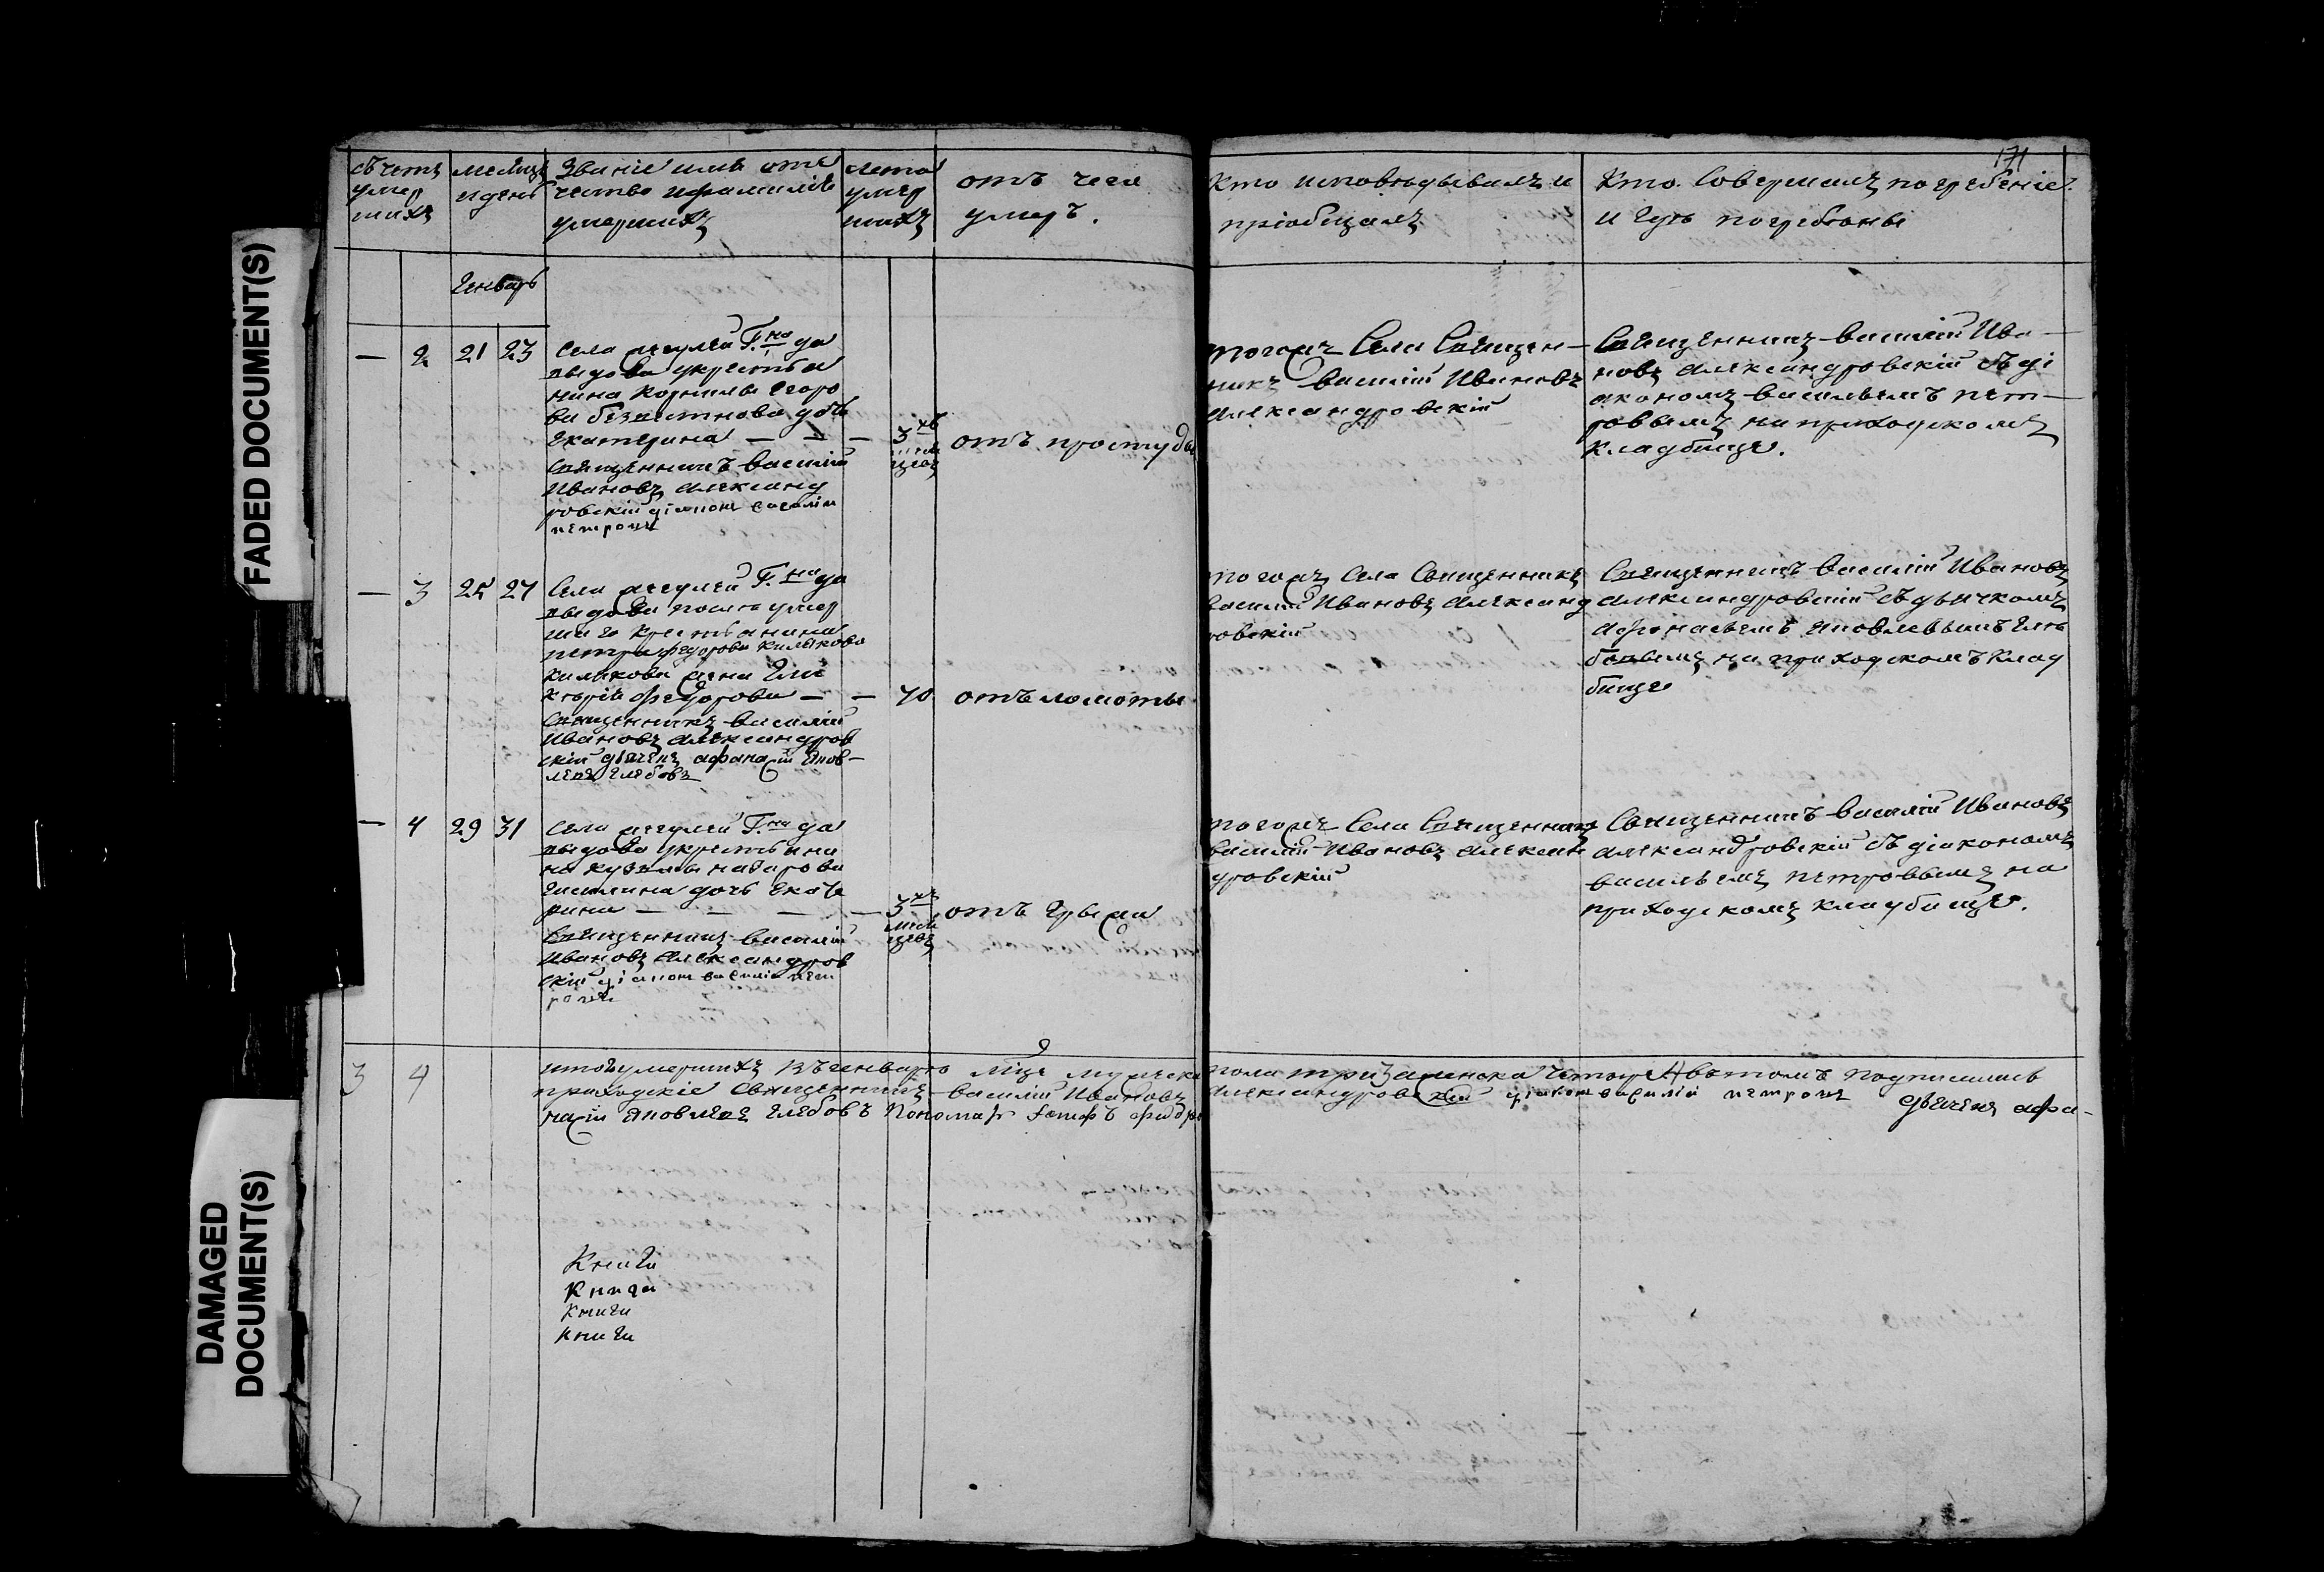 FADED DOCUMENT(S)
DAMAGED
DOCUMENT(S)
171
счетъ
умер
шихъ
месяцъ
и день
Звание имя оте
чество ифамилія
умершихъ
лета
умер
шихъ
отъ чего
умеръ.
Кто исповѣдывалъ и
пріобщалъ
Кто совершалъ погребеніе
и гдѣ погребены
Генварь
— 2 21 23
Села Г.на да
выдова крестья
нина Корнилы Егоро
ва дочь
Екатерина — —
Священникъ василій
Ивановъ Александ
ровскій діаконъ василій
петровъ
3хъ
меся
цевъ
отъ простуды
тогожъ Села Священ—
никъ василій Ивановъ
Александровскій
Священникъ василій Ива—
новъ Александровскій съ ді
акономъ васильемъ пет—
ровымъ на приходскомъ
кладбище.
— 3 25 27
Села Г.на да
выдова после умер
шаго крестьянина
петра федорова
жена Гли
керія федорова —
Священникъ василій
Ивановъ Александров
скій дьячекъ афанасій Яков—
левъ глебовъ
— 70
отъ ломоты
тогожъ Села Священникъ
василій Ивановъ Александ
ровскій
Священникъ василій Ивановъ
Александровскій съ дьячкомъ
Афонасьемъ Яковлевымъ Гле
бовымъ на приходскомъ клад
бище
— 4 29 31
Села Г.на да
выдова крестьяни
на кузмы назарова
дочь Екате
рина — — —
Священникъ василій
Ивановъ Александров
скій діаконъ василій пет
ровъ
— 3хъ
меся
цевъ
отъ грыжи
тогожъ Села Священникъ
василій Ивановъ Алексан
дровскій
Священникъ василій Ивановъ
Александровскій съ діакономъ
васильемъ петровымъ на
приходскомъ кладбище.
3 4
итого умершихъ въ генваре мужеска пола три женска четыре 4 вътомъ подписались
приходскіе Священникъ василій Ивановъ Александровскій діаконъ василій петровъ дьячекъ афа—
насій Яковлевъ глебовъ Пономарь
Книги
Книги
Книги
Книги